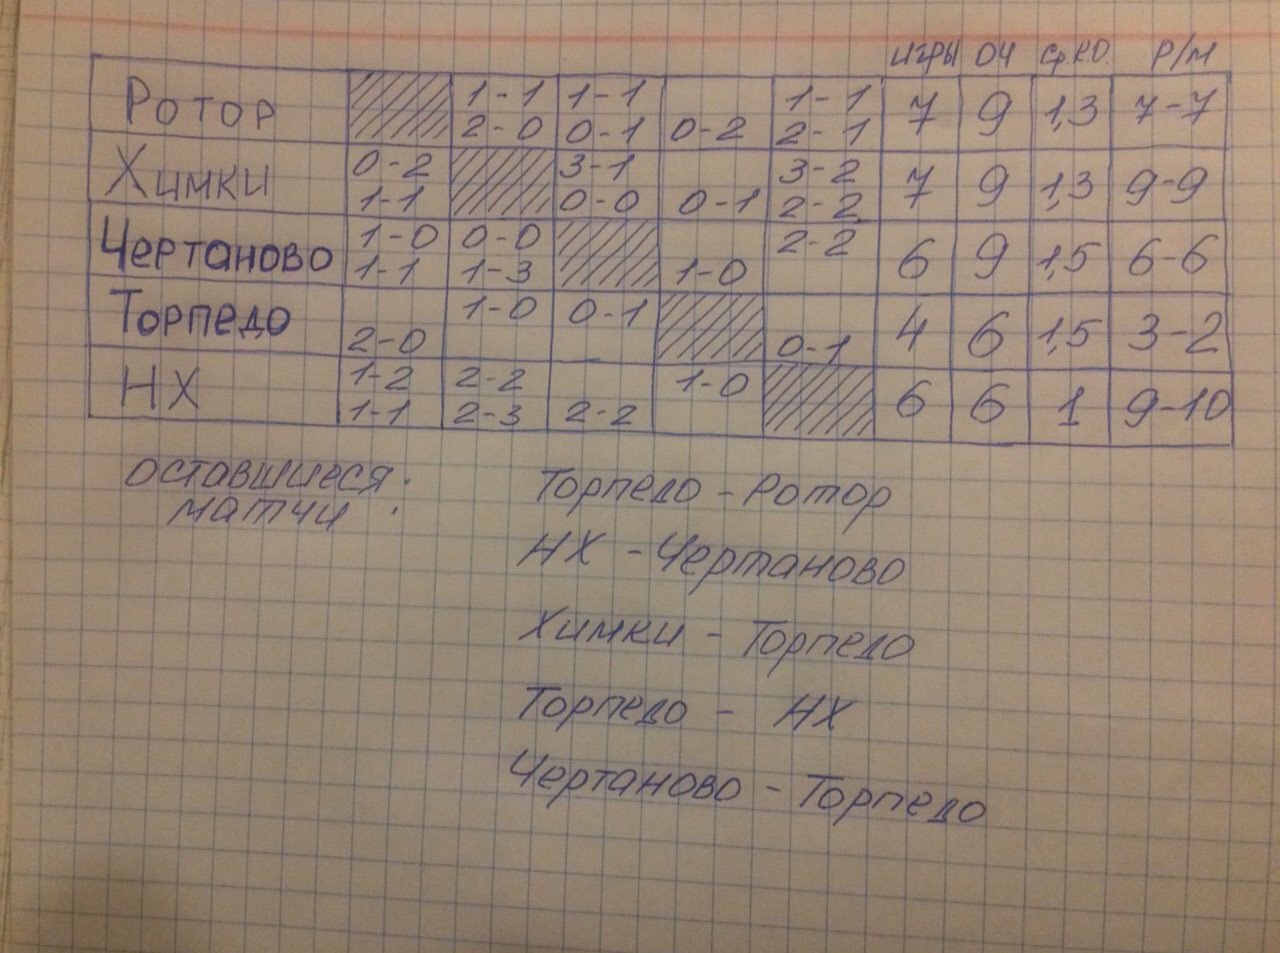 ИГРЫ ОЧ Ср.К.О. Р/М
Ротор 1-1 2-0 1-1 0-1 0-2 1-1 2-1 7 9 1,3 7-7
Химки 0-2 1-1 3-1 0-0 0-1 3-2 2-2 7 9 1,3 9-9
Чертаново 1-0 1-1 0-0 1-3 1-0 2-2 6 9 1,5 6-6
Торпедо 2-0 1-0 0-1 0-1 4 6 1,5 3-2
НХ 1-2 1-1 2-2 2-3 2-2 1-0 6 6 1 9-10
оставшиеся матчи :
Торпедо - Ротор
НХ - Чертаново
Химки - Торпедо
Торпедо - НХ
Чертаново - Торпедо